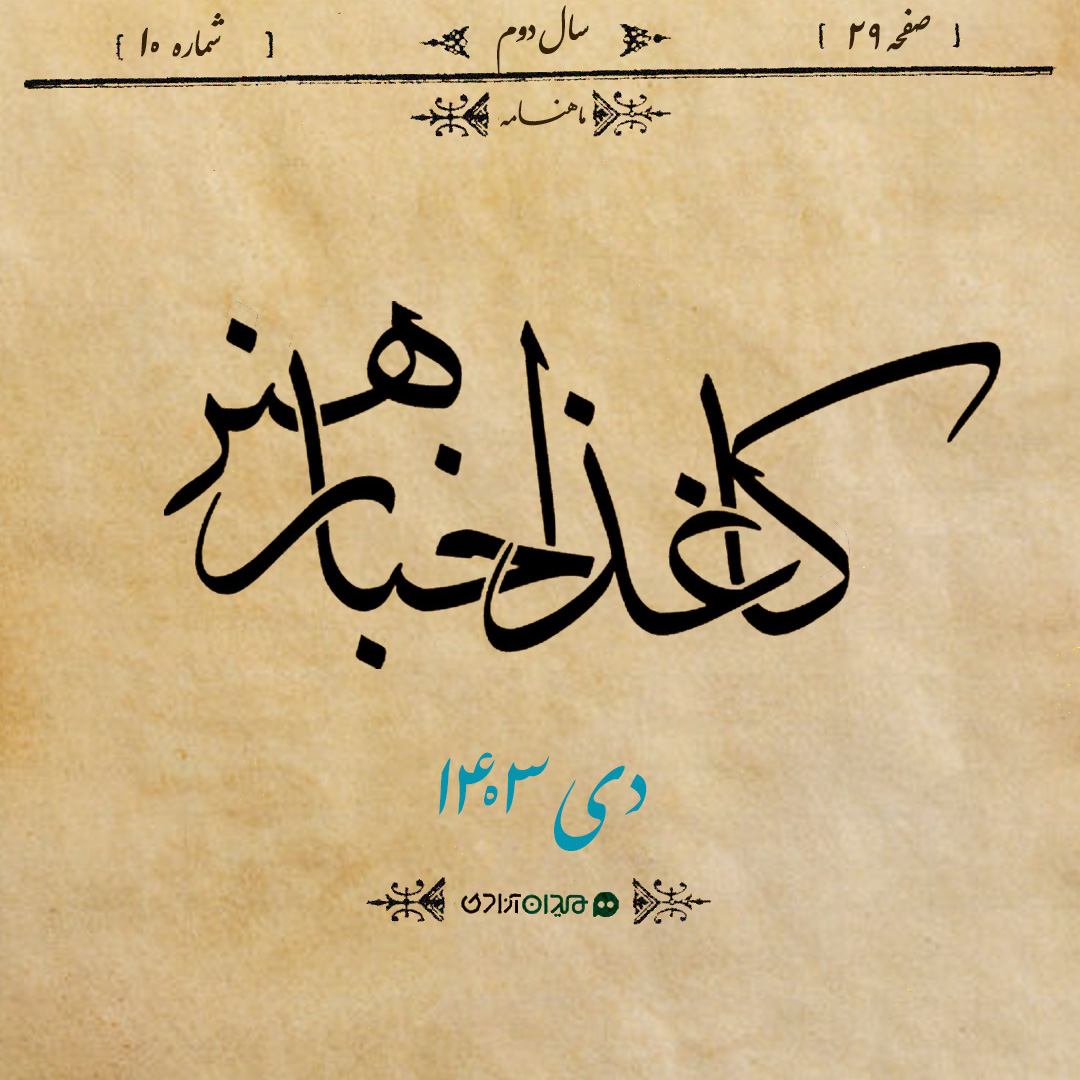 صفحه ۲۹ سال دوم شماره ۱۰
ماهنامه
کاغذ اخبار هنر
دی ۱۴۰۳
میدان آزادی